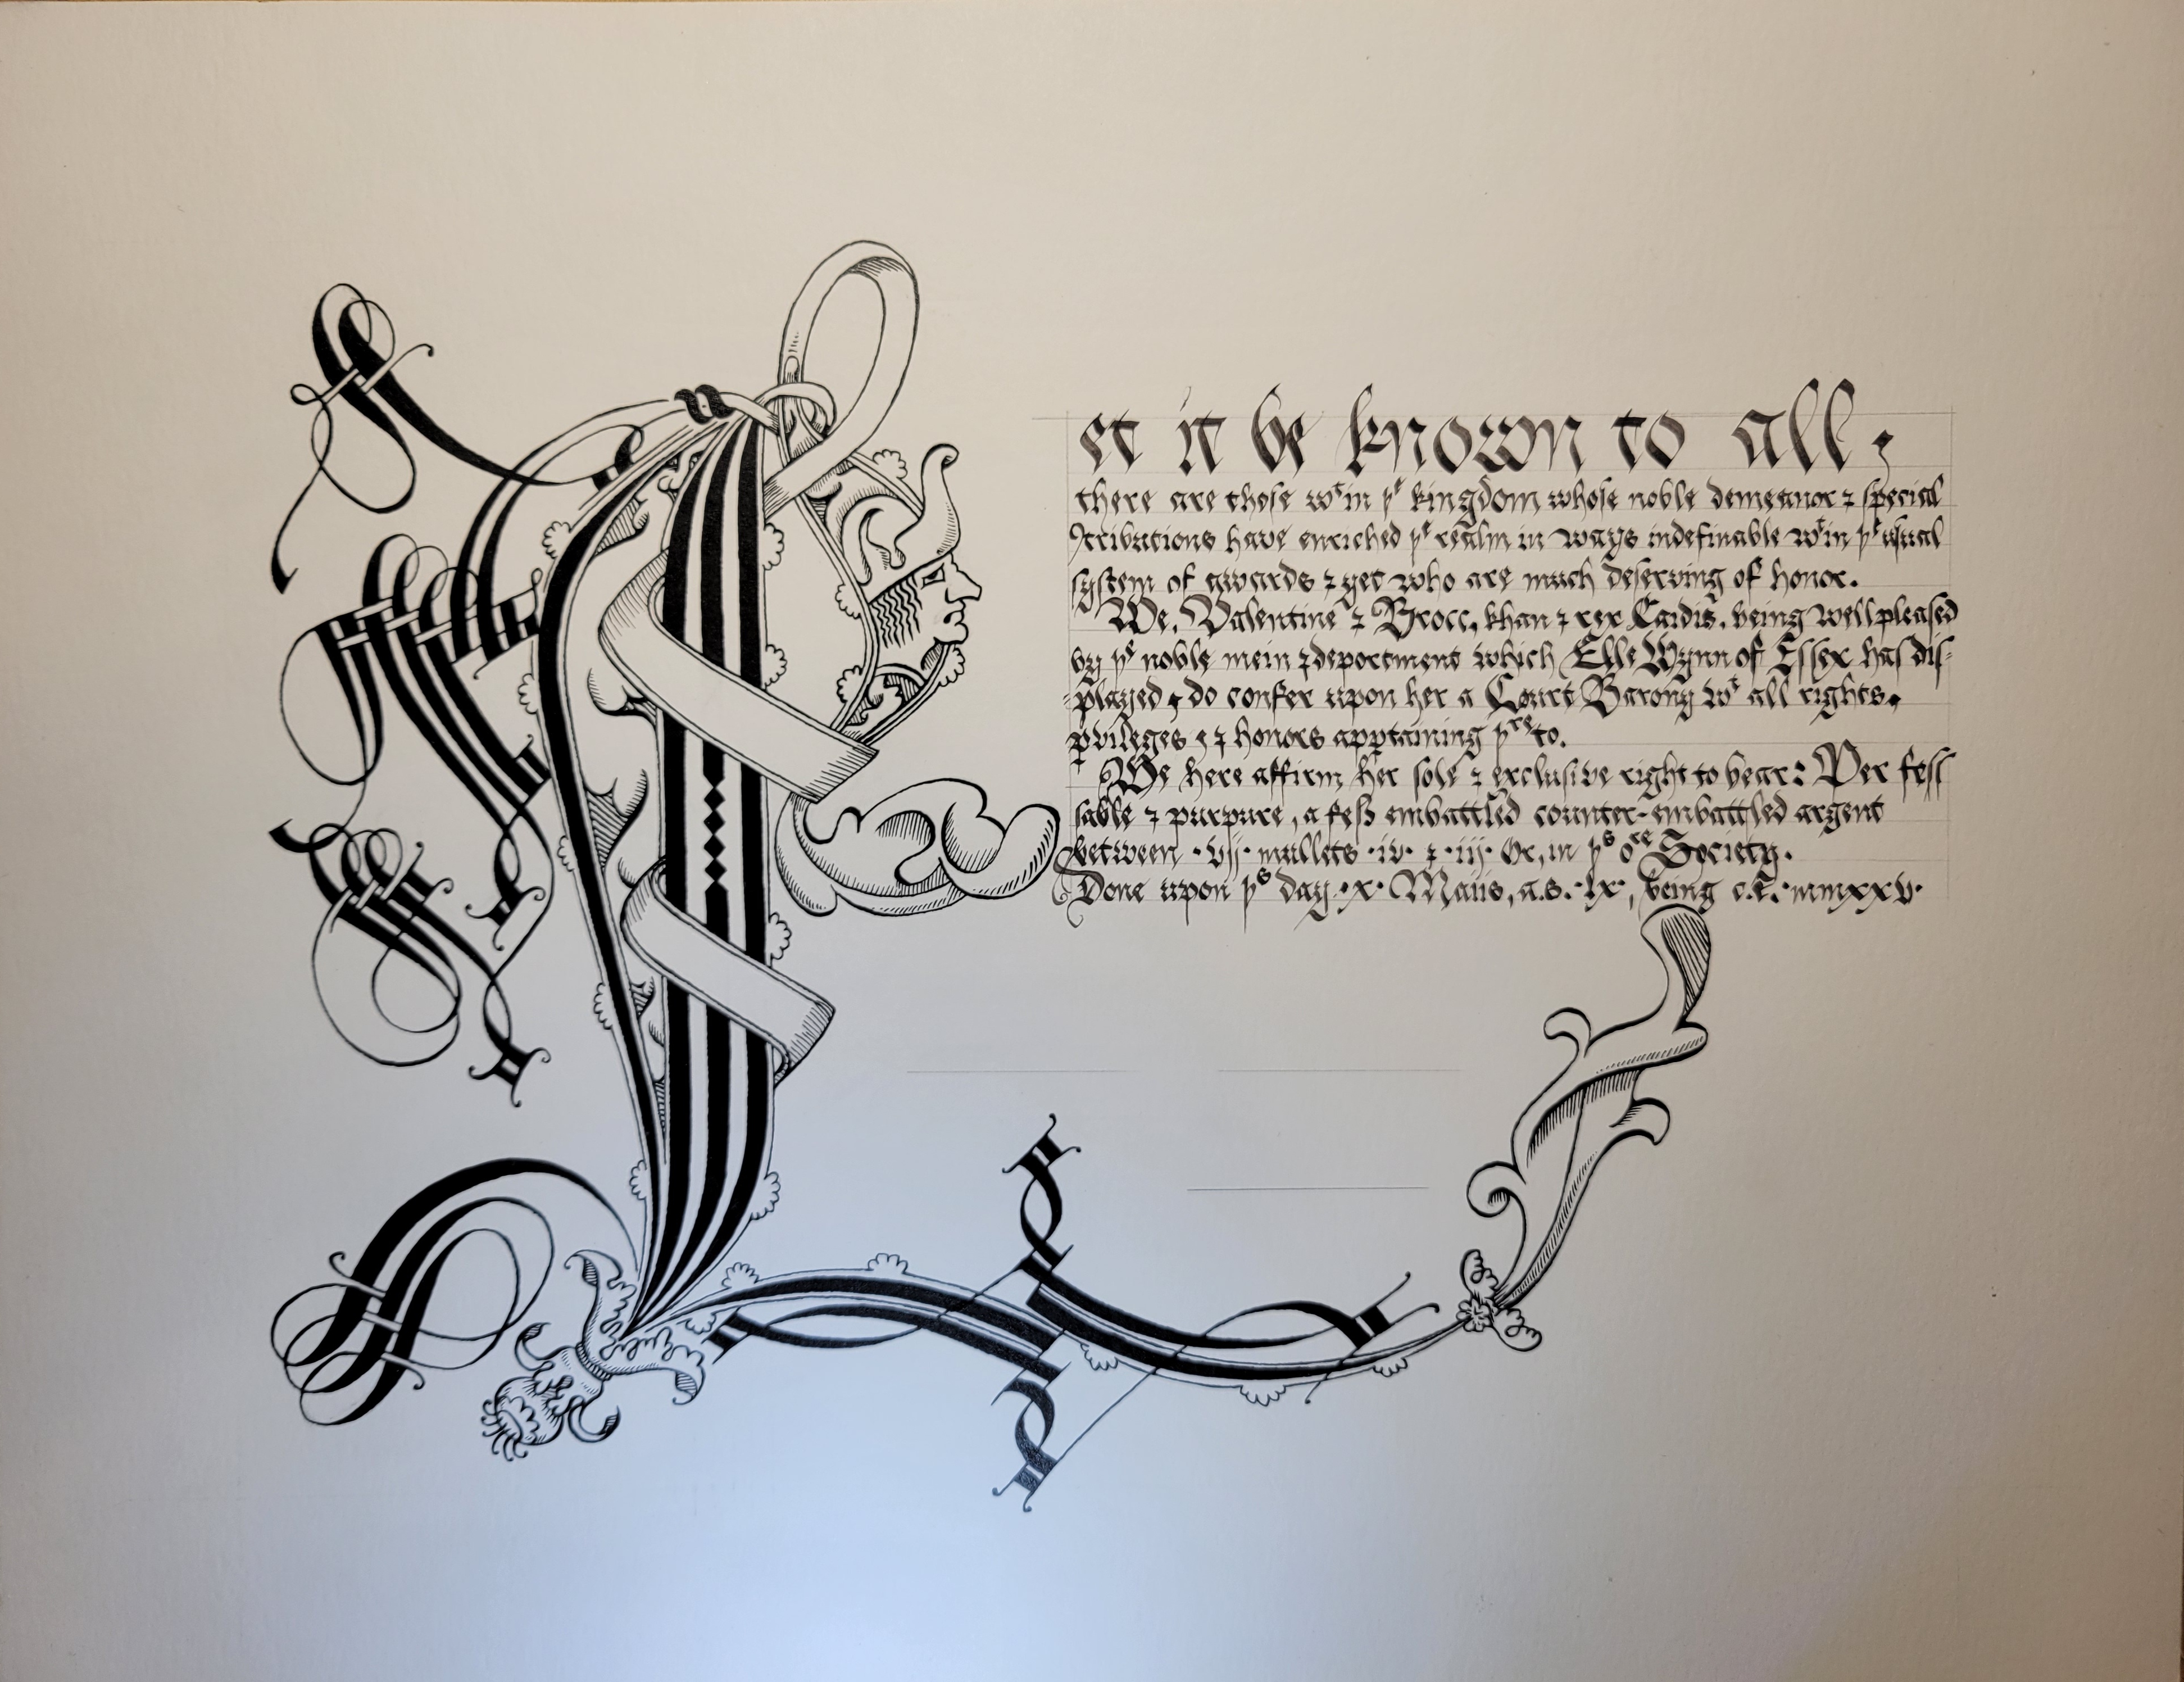 Let it be known to all,
there are those wt in ye kingdom whose noble demeanor ⁊ special
ꝯtributions have enriched ye realm in ways indefinable wt in ye usual
system of awards ⁊ yet who are much deserving of honor.
We, Valentine ⁊ Brocc, khan ⁊ rex Caidis, being well pleased
by ye noble mein ⁊ deportment which Elle Wynn of Essex has dis-
-played, do confer upon her a Court Barony wt all rights,
pvileges, ⁊ honors apptaining yre to.
We here affirm her sole ⁊ exclusive right to bear: Per fess
sable ⁊ purpure, a fess embattled counter-embattled argent
between ·vij· mullets ·iv· ⁊ ·iij· Or, in ys ore Society.
Done upon ys day ·x· Maiis, a.s. ·lx·, being c.e. ·mmxxv·